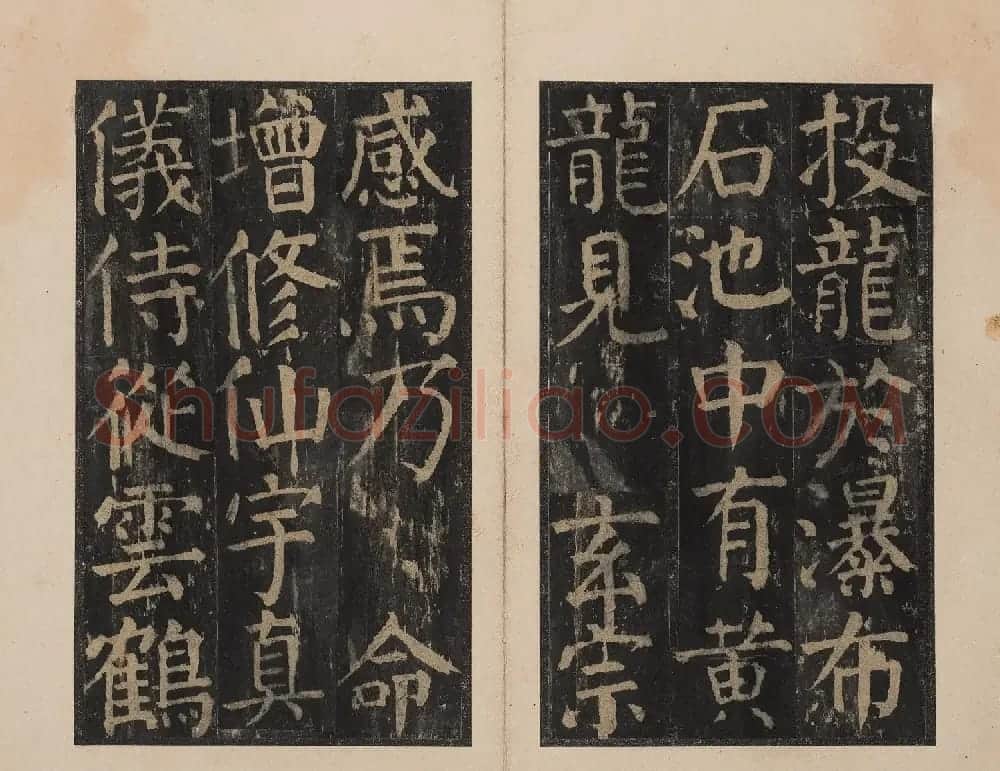 投龍於瀑布
石池中有黄
龍見玄宗
感焉乃命
增修仙宇真
儀侍從雲鶴
Shufaziliao.COM